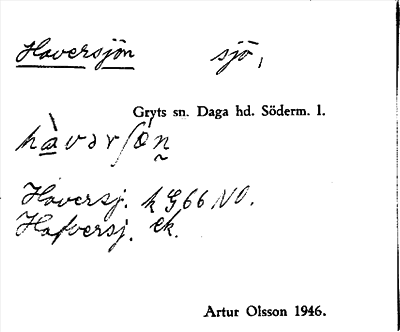 Haversjön sjö,
Gryts sn. Daga hd. Söderm. l.
Haversj. k G66 NO.
Hafversj. ek.
Artur Olsson 1946.